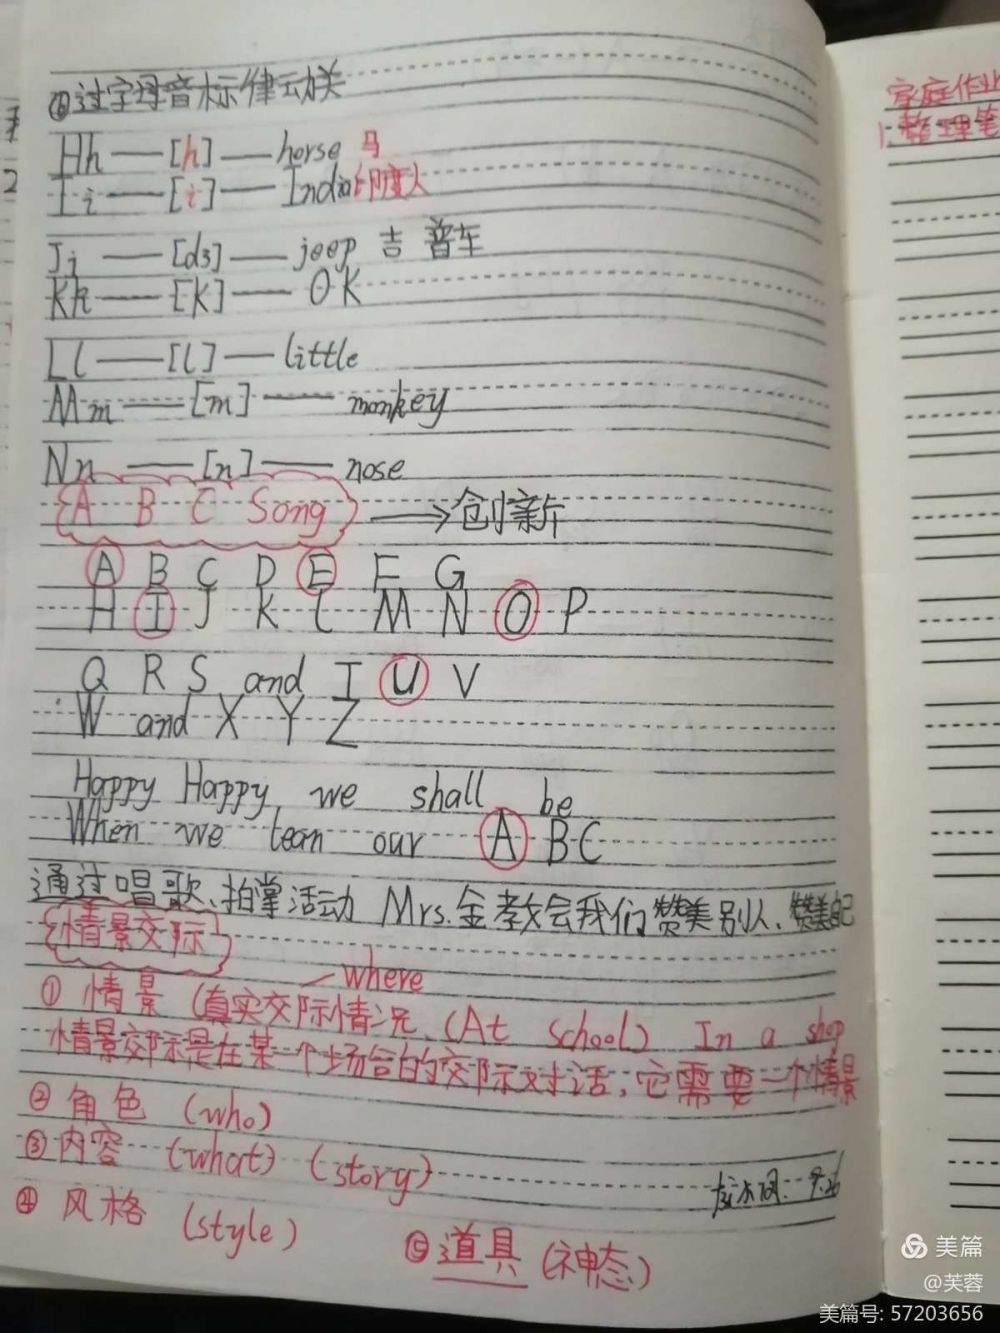 ⑥过字母音标律动关
Hh — [h] — horse 马
Ii — [i] — Indian 印度人
Jj — [dʒ] — jeep 吉普车
Kk — [k] — OK
Ll — [l] — little
Mm — [m] — monkey
Nn — [n] — nose
A B C Song → 创新
A B C D E F G
H I J K L M N O P
Q R S and T U V
W and X Y Z
Happy Happy we shall be
When we learn our A B C
通过唱歌、拍掌活动 Mrs.金教会我们赞美别人、赞美自己
情景交际
where
① 情景 (真实交际情况、(At school) In a shop
情景交际是在某一个场合的交际对话,它需要一个情景
② 角色 (who)
③ 内容 (what) (story)
9.26
④ 风格 (style)
⑤ 道具 (神态)
家庭作业
1.整理笔
美篇
@芙蓉
美篇号: 57203656